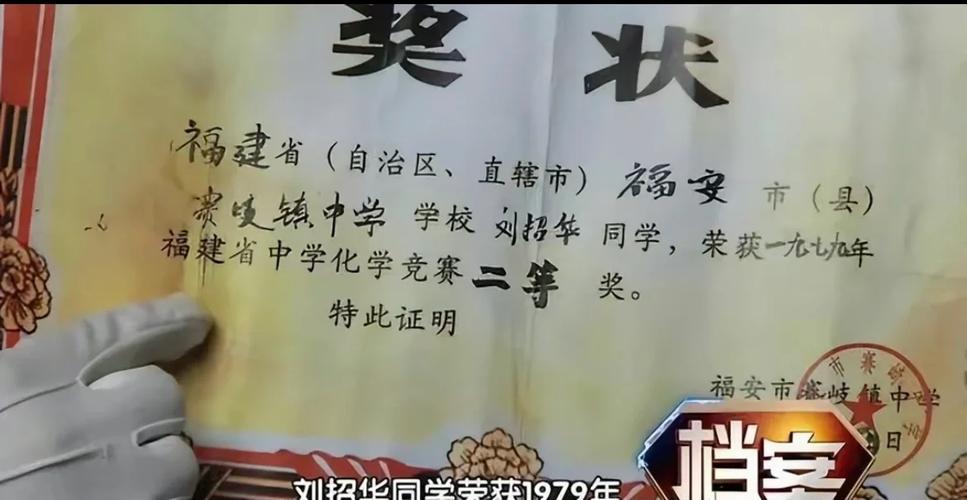 奖状
福建省（自治区、直辖市）福安市（县）
赛岐镇中学学校刘招华同学，荣获一九七九年
福建省中学化学竞赛二等奖。
特此证明
福安市赛岐镇中学
日
档案
刘招华同学荣获1979年